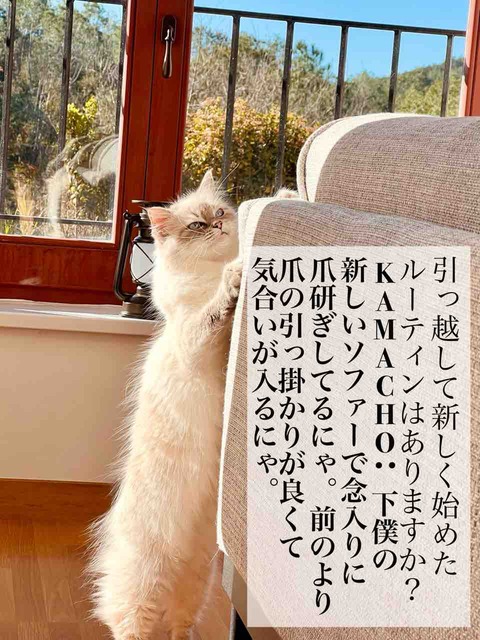 引っ越して新しく始めた
ルーティンはありますか?
KAMACHO: 下僕の
新しいソファーで念入りに
爪研ぎしてるにゃ。前のより
爪の引っ掛かりが良くて
気合いが入るにゃ。